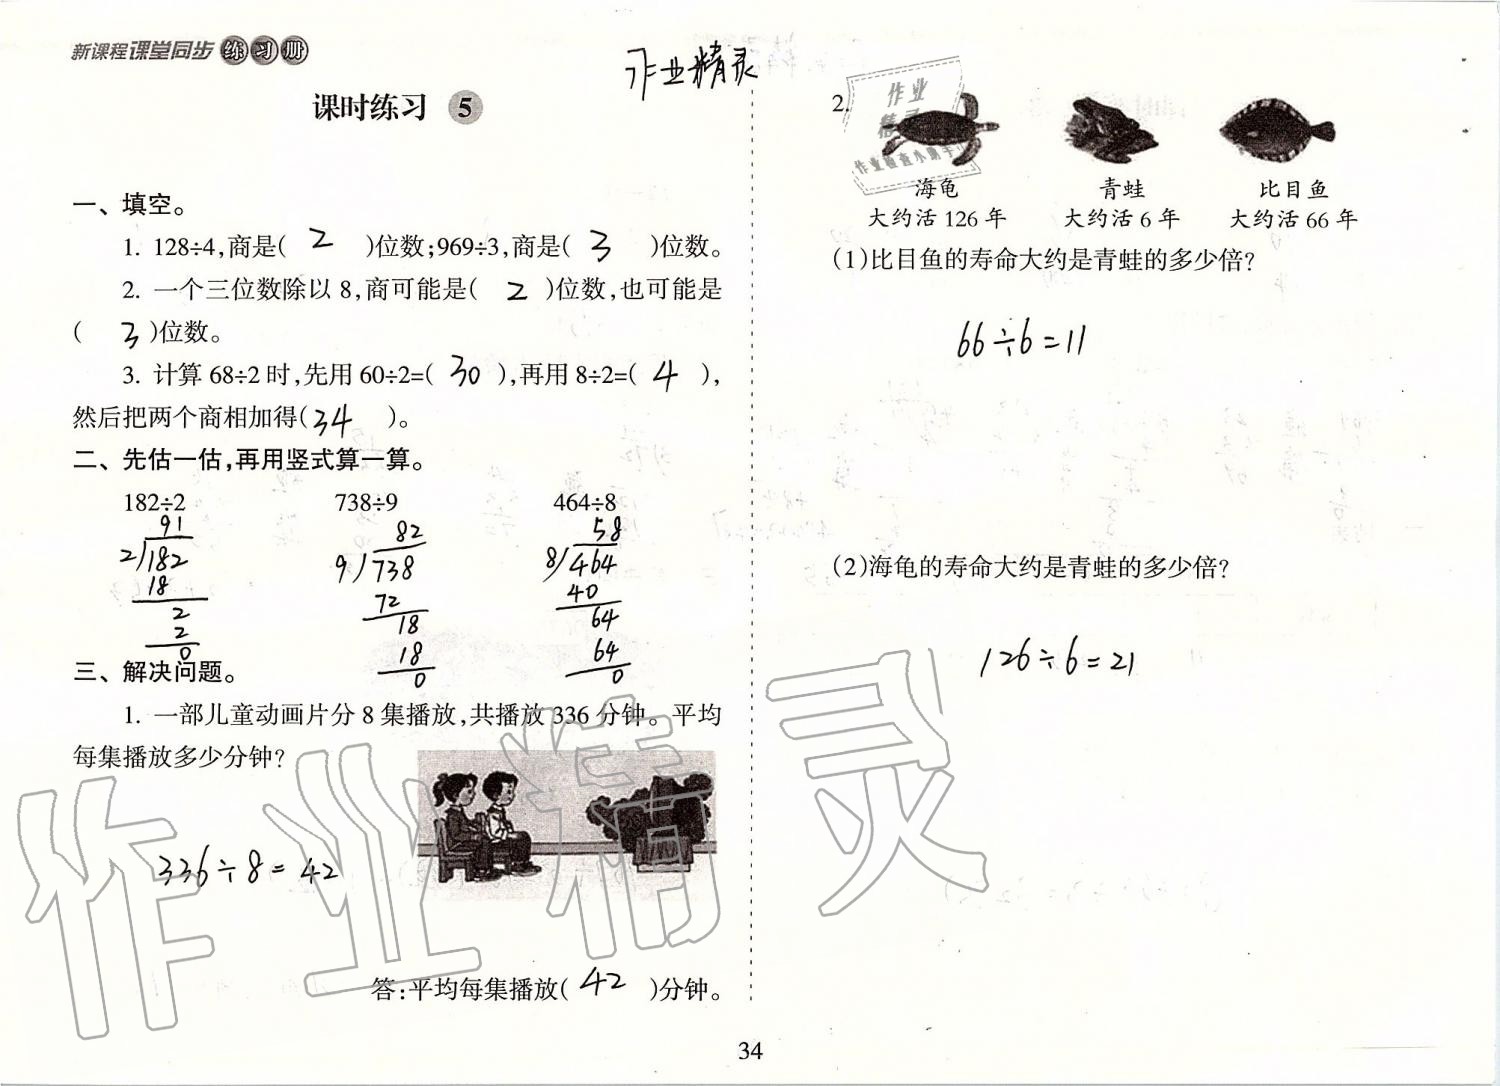 新课程课堂同步练习册
作业精灵
课时练习 5
一、填空。
1. 128÷4,商是( 2 )位数;969÷3,商是( 3 )位数。
2. 一个三位数除以8,商可能是( 2 )位数,也可能是
( 3 )位数。
3. 计算68÷2时,先用60÷2=( 30 ),再用8÷2=( 4 ),
然后把两个商相加得( 34 )。
二、先估一估,再用竖式算一算。
182÷2 738÷9 464÷8
91 82 58
2)182 9)738 8)464
18 72 40
2 18 64
2 18 64
0 0 0
三、解决问题。
1. 一部儿童动画片分8集播放,共播放336分钟。平均
每集播放多少分钟?
336÷8=42
答:平均每集播放( 42 )分钟。
2.
作业
精灵
作业检查小助手
海龟 青蛙 比目鱼
大约活126年 大约活6年 大约活66年
(1)比目鱼的寿命大约是青蛙的多少倍?
66÷6=11
(2)海龟的寿命大约是青蛙的多少倍?
126÷6=21
作业精灵
34